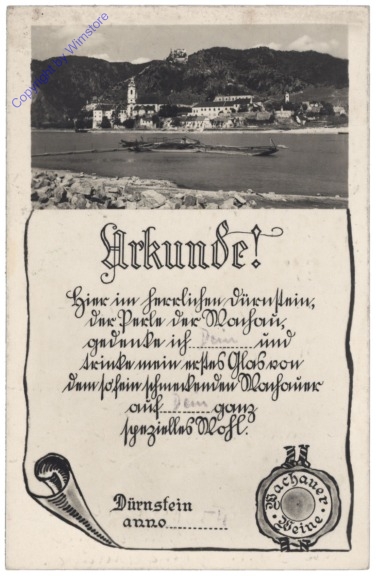 Copyright by Wimstore
Urkunde!
Hier im herrlichen Dürnstein,
der Perle der Wachau,
gedenke ich Dein und
trinke mein erstes Glas von
dem so fein schmeckenden Wachauer
auf Dein ganz
spezielles Wohl.
Dürnstein
anno
Wachauer Weine